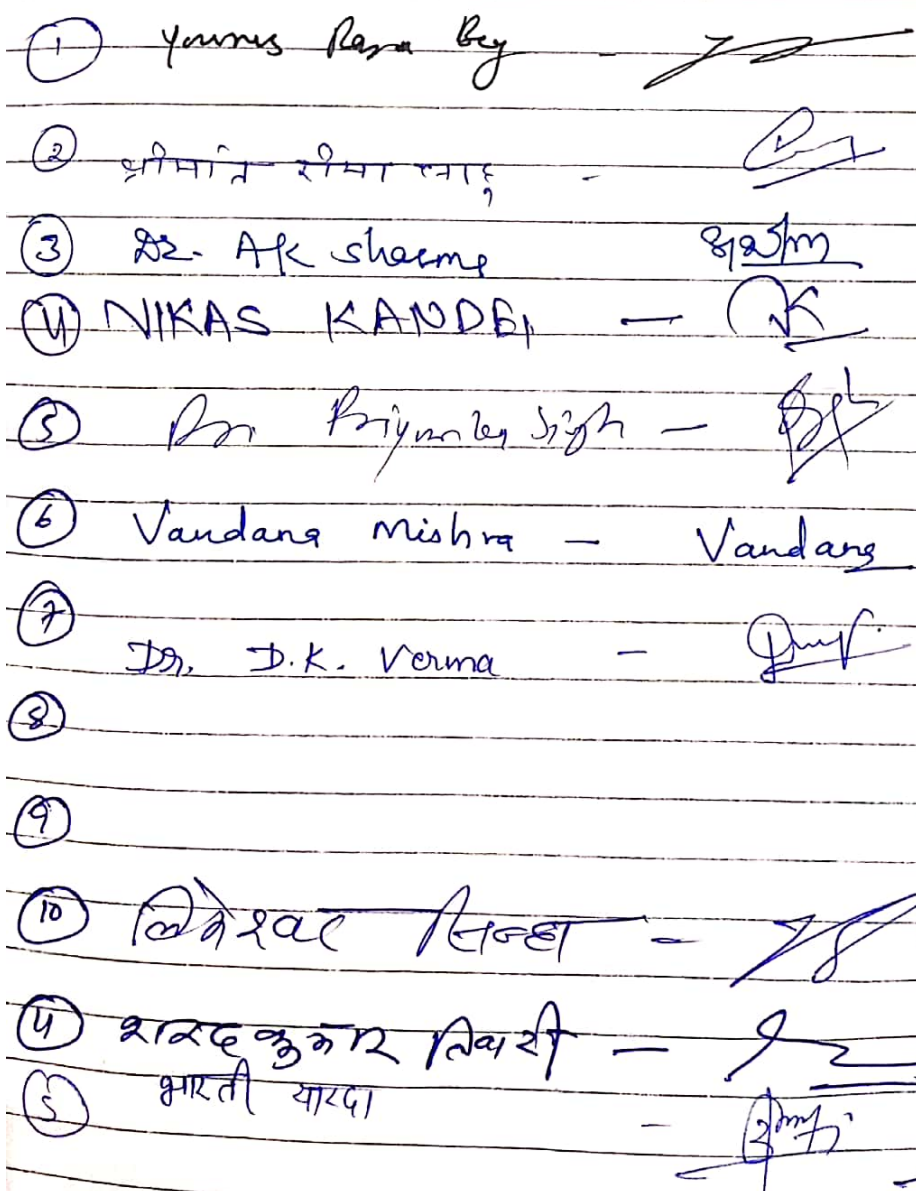 1 Younus Raza Beg -
2 श्रीमति सीमा साहू -
3 Dr. AK sharma
4 VIKAS KANDEL -
5 Dr. Priyanka Singh -
6 Vandana Mishra - Vandana
7
Dr. D.K. Verma -
8
9
10 सिन्हा -
4 शरद कुमार तिवारी -
5 भारती शारदा -